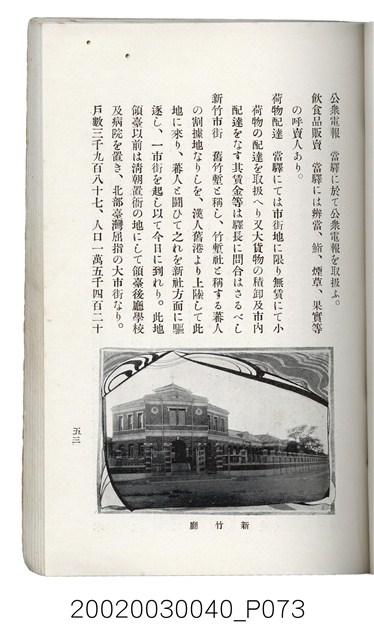 公衆電報　當驛に於て公衆電報を取扱ふ。
飲食品販賣　當驛には辨當、鮨、煙草、果實等
の呼賣人あり。
荷物配達　當驛にては市街地に限り無賃にて小
荷物の配達を取扱へり又大貨物の積卸及市内
配達をなす其賃金等は驛長に問合はさるべし
新竹市街　舊竹塹と稱し、竹塹社と稱する蕃人
の割據地なりしを、漢人舊港より上陸して此
地に來り、蕃人と鬪ひて之れを新社方面に驅
逐し、一市街を起し以て今日に到れり。此地
領臺以前は淸朝置衙の地にして領臺後廳學校
及病院を置き、北部臺灣屈指の大市街なり。
戸數三千九百八十七、人口一萬五千四百二十
新竹廳
五三
20020030040_P073